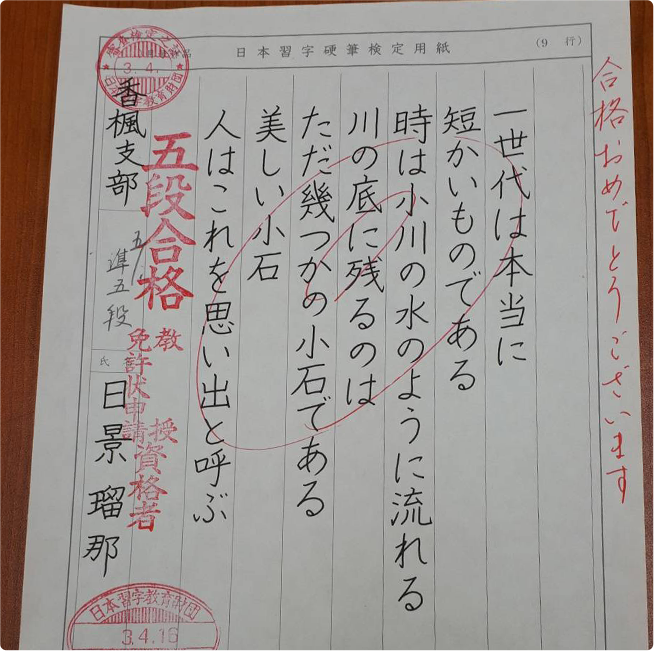 日本習字硬筆検定用紙
(9 行)
合格おめでとうございます
一世代は本当に
短かいものである
時は小川の水のように流れる
川の底に残るのは
ただ幾つかの小石である
美しい小石
人はこれを思い出と呼ぶ
五段合格
教授
免許状申請資格者
3.4.
日本習字教育財団
香楓支部
五
準五段
氏
日景瑠那
日本習字教育財団
3.4.16